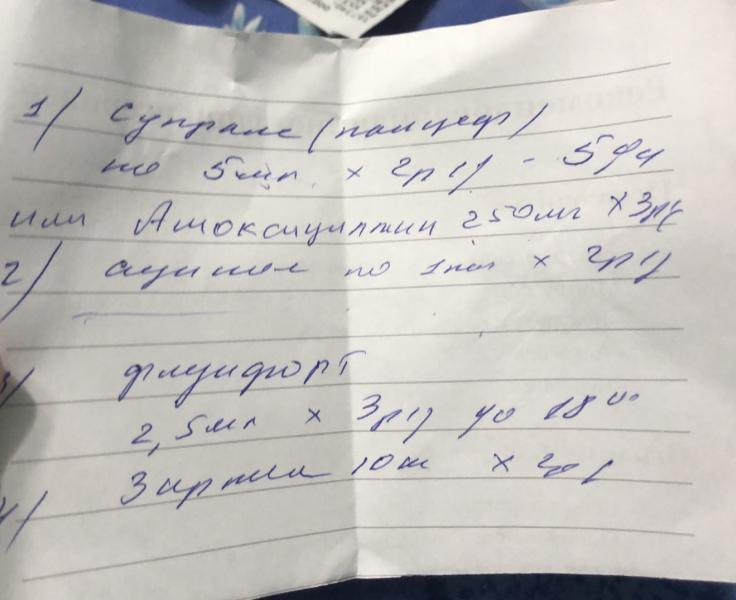 1) Супракс (панцеф)
по 5мл х 2р/д - 5дн
или Амоксициллин 250мг х 3р/д
2) по 1пак х 2р/д
3) флуифорт
2,5мл х 3р/д до 18 00
4) 10к х 2р/д